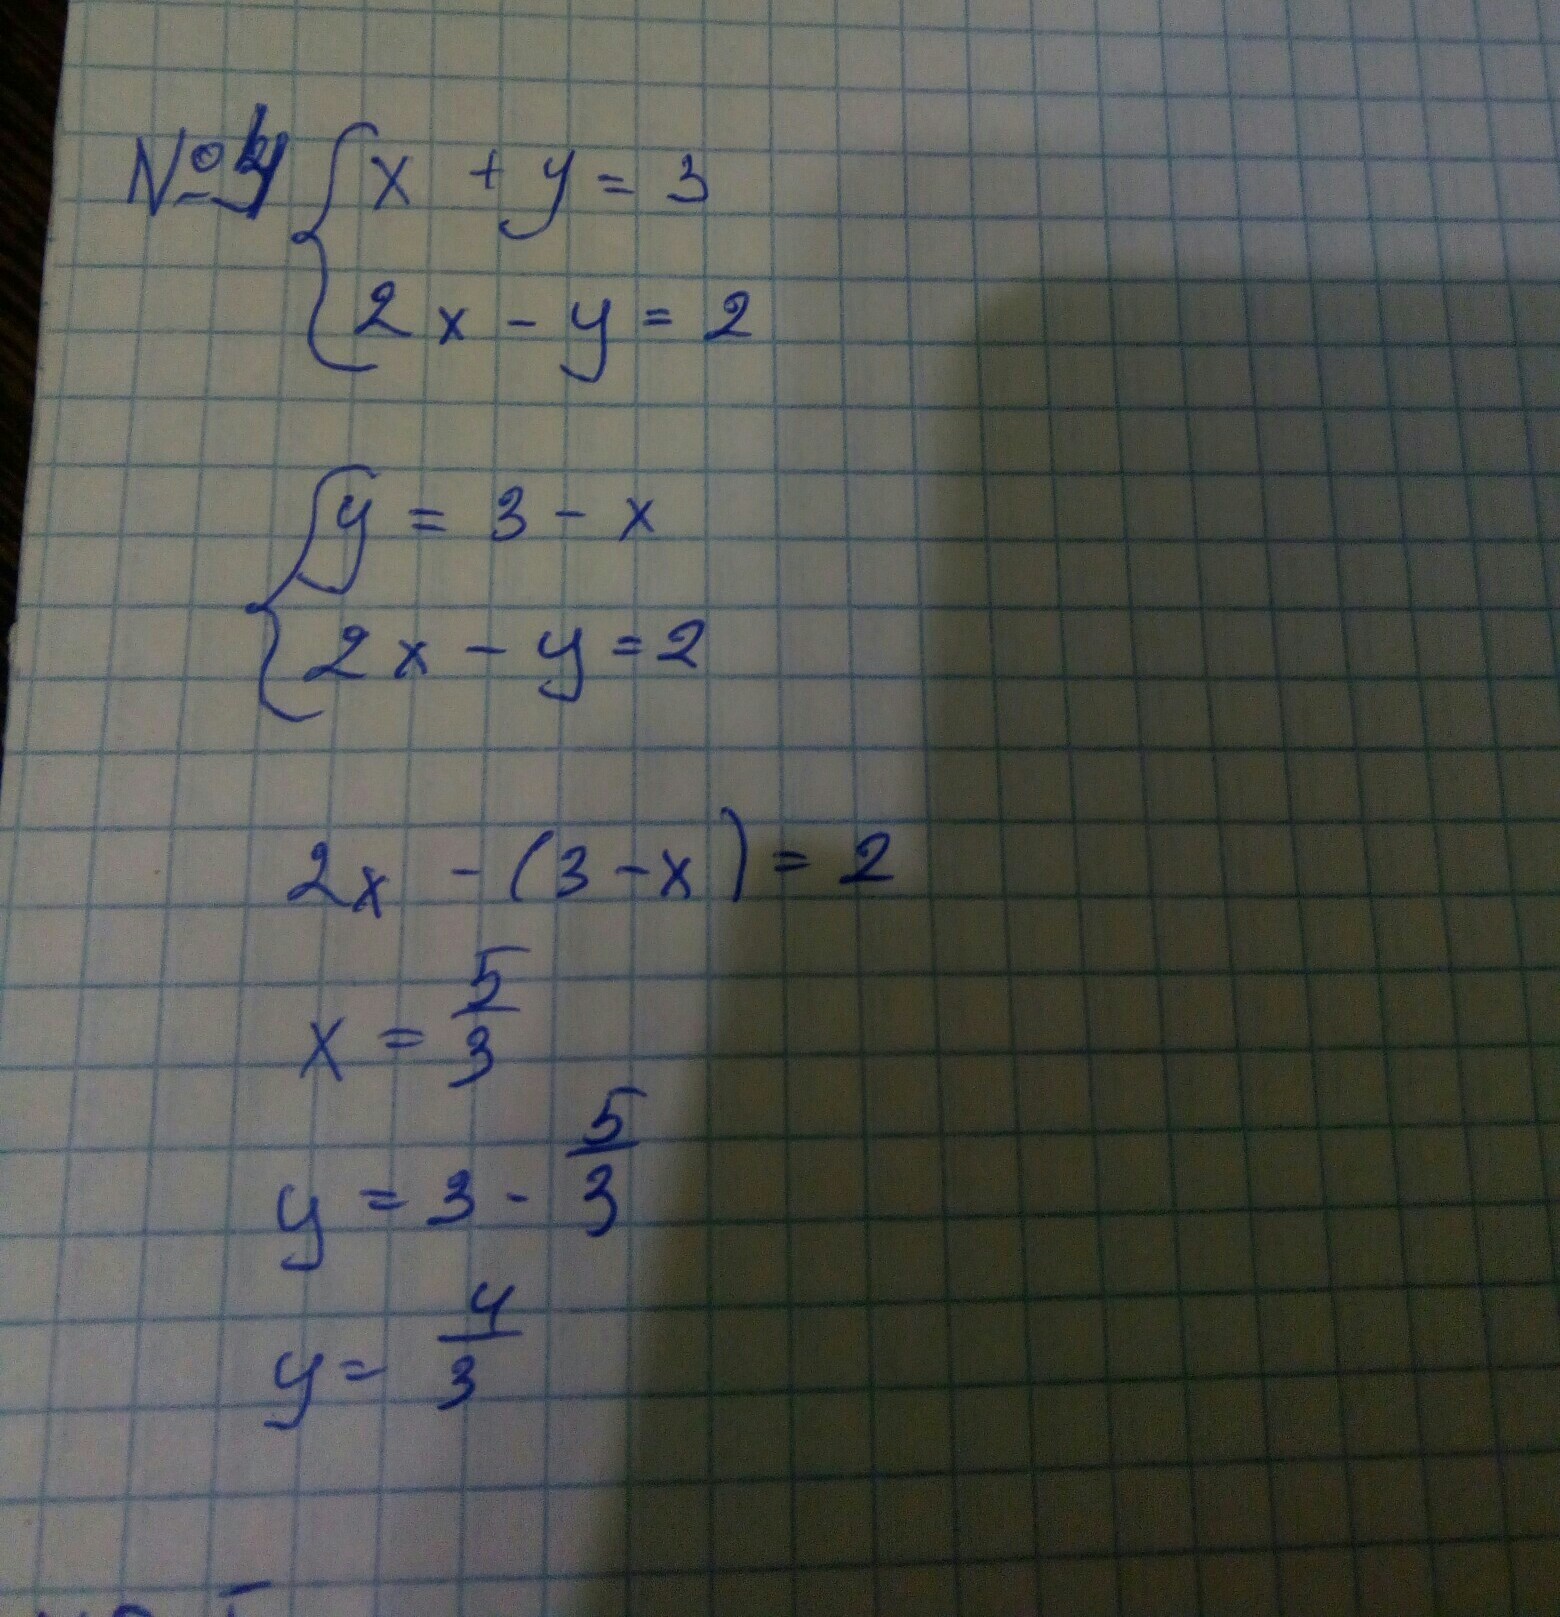 №4 { x + y = 3
2x - y = 2
{ y = 3 - x
2x - y = 2
2x - (3 - x) = 2
x = 5/3
y = 3 - 5/3
y = 4/3